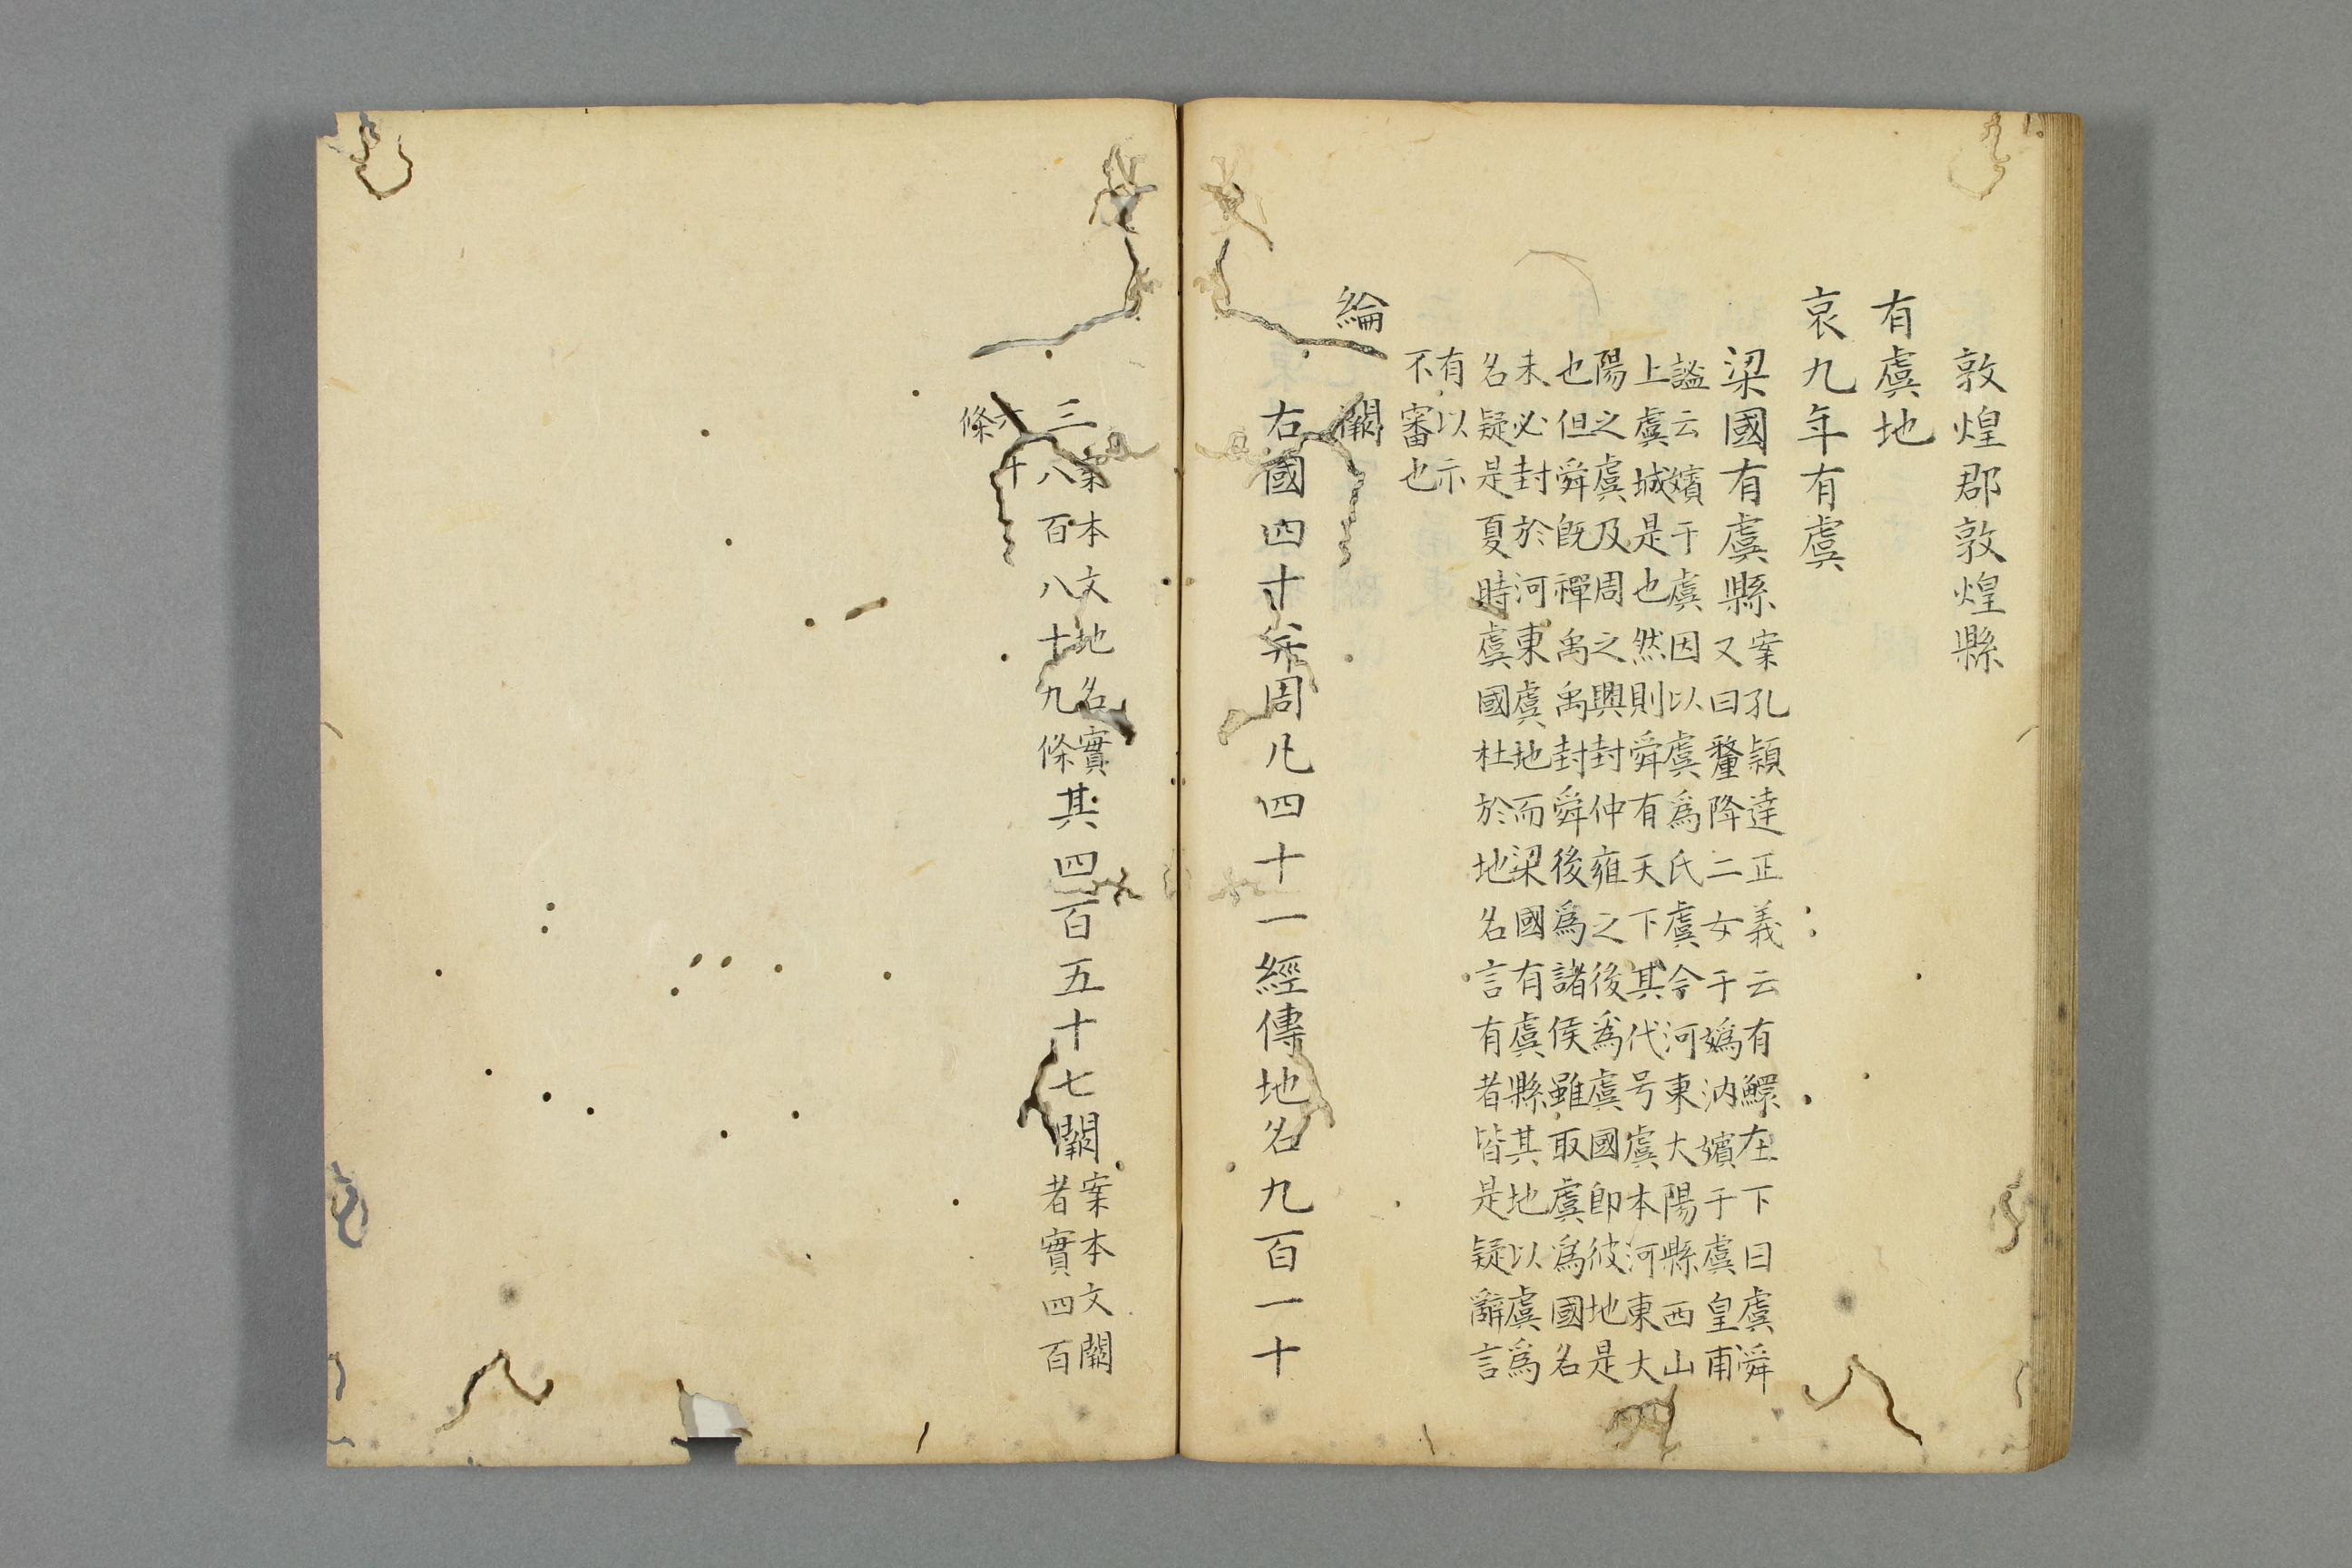 敦煌郡敦煌縣
有虞地
哀九年有虞
梁國有虞縣
案孔穎達正義云有鰥在下曰虞舜
又曰釐降二女于嬀汭嬪于虞皇甫
謐云嬪于虞因以虞爲氏虞今河東大陽縣西山
上虞城是也然則舜有天下其代号虞本河東大
陽之虞及周之興封仲雍之後爲虞國即彼地是
也但舜既禪禹禹封舜後爲諸侯雖取虞爲國名
未必封於河東虞地而梁國有虞縣其地以虞爲
名疑是夏時虞國杜於地名言有者皆是疑辭言
有以示
不審也
綸 闕
右國四十并周凡四十一經傳地名九百一十
三
案本文地名實
八百八十九條
其四百五十七闕
案本文闕
者實四百
六十
條